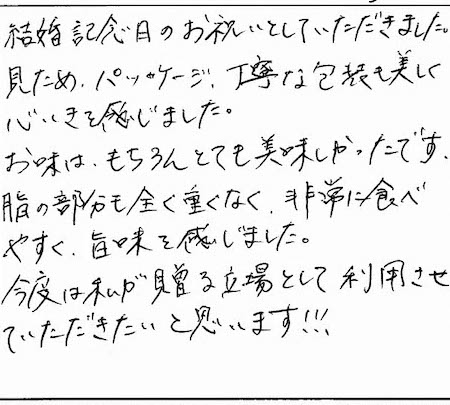 結婚記念日のお祝いとしていただきました。
見ため、パッケージ、丁寧な包装も美しく
心いきを感じました。
お味は、もちろんとても美味しかったです。
脂の部分も全く重くなく、非常に食べ
やすく、旨味を感じました。
今度は私が贈る立場として利用させ
ていただきたいと思います!!!